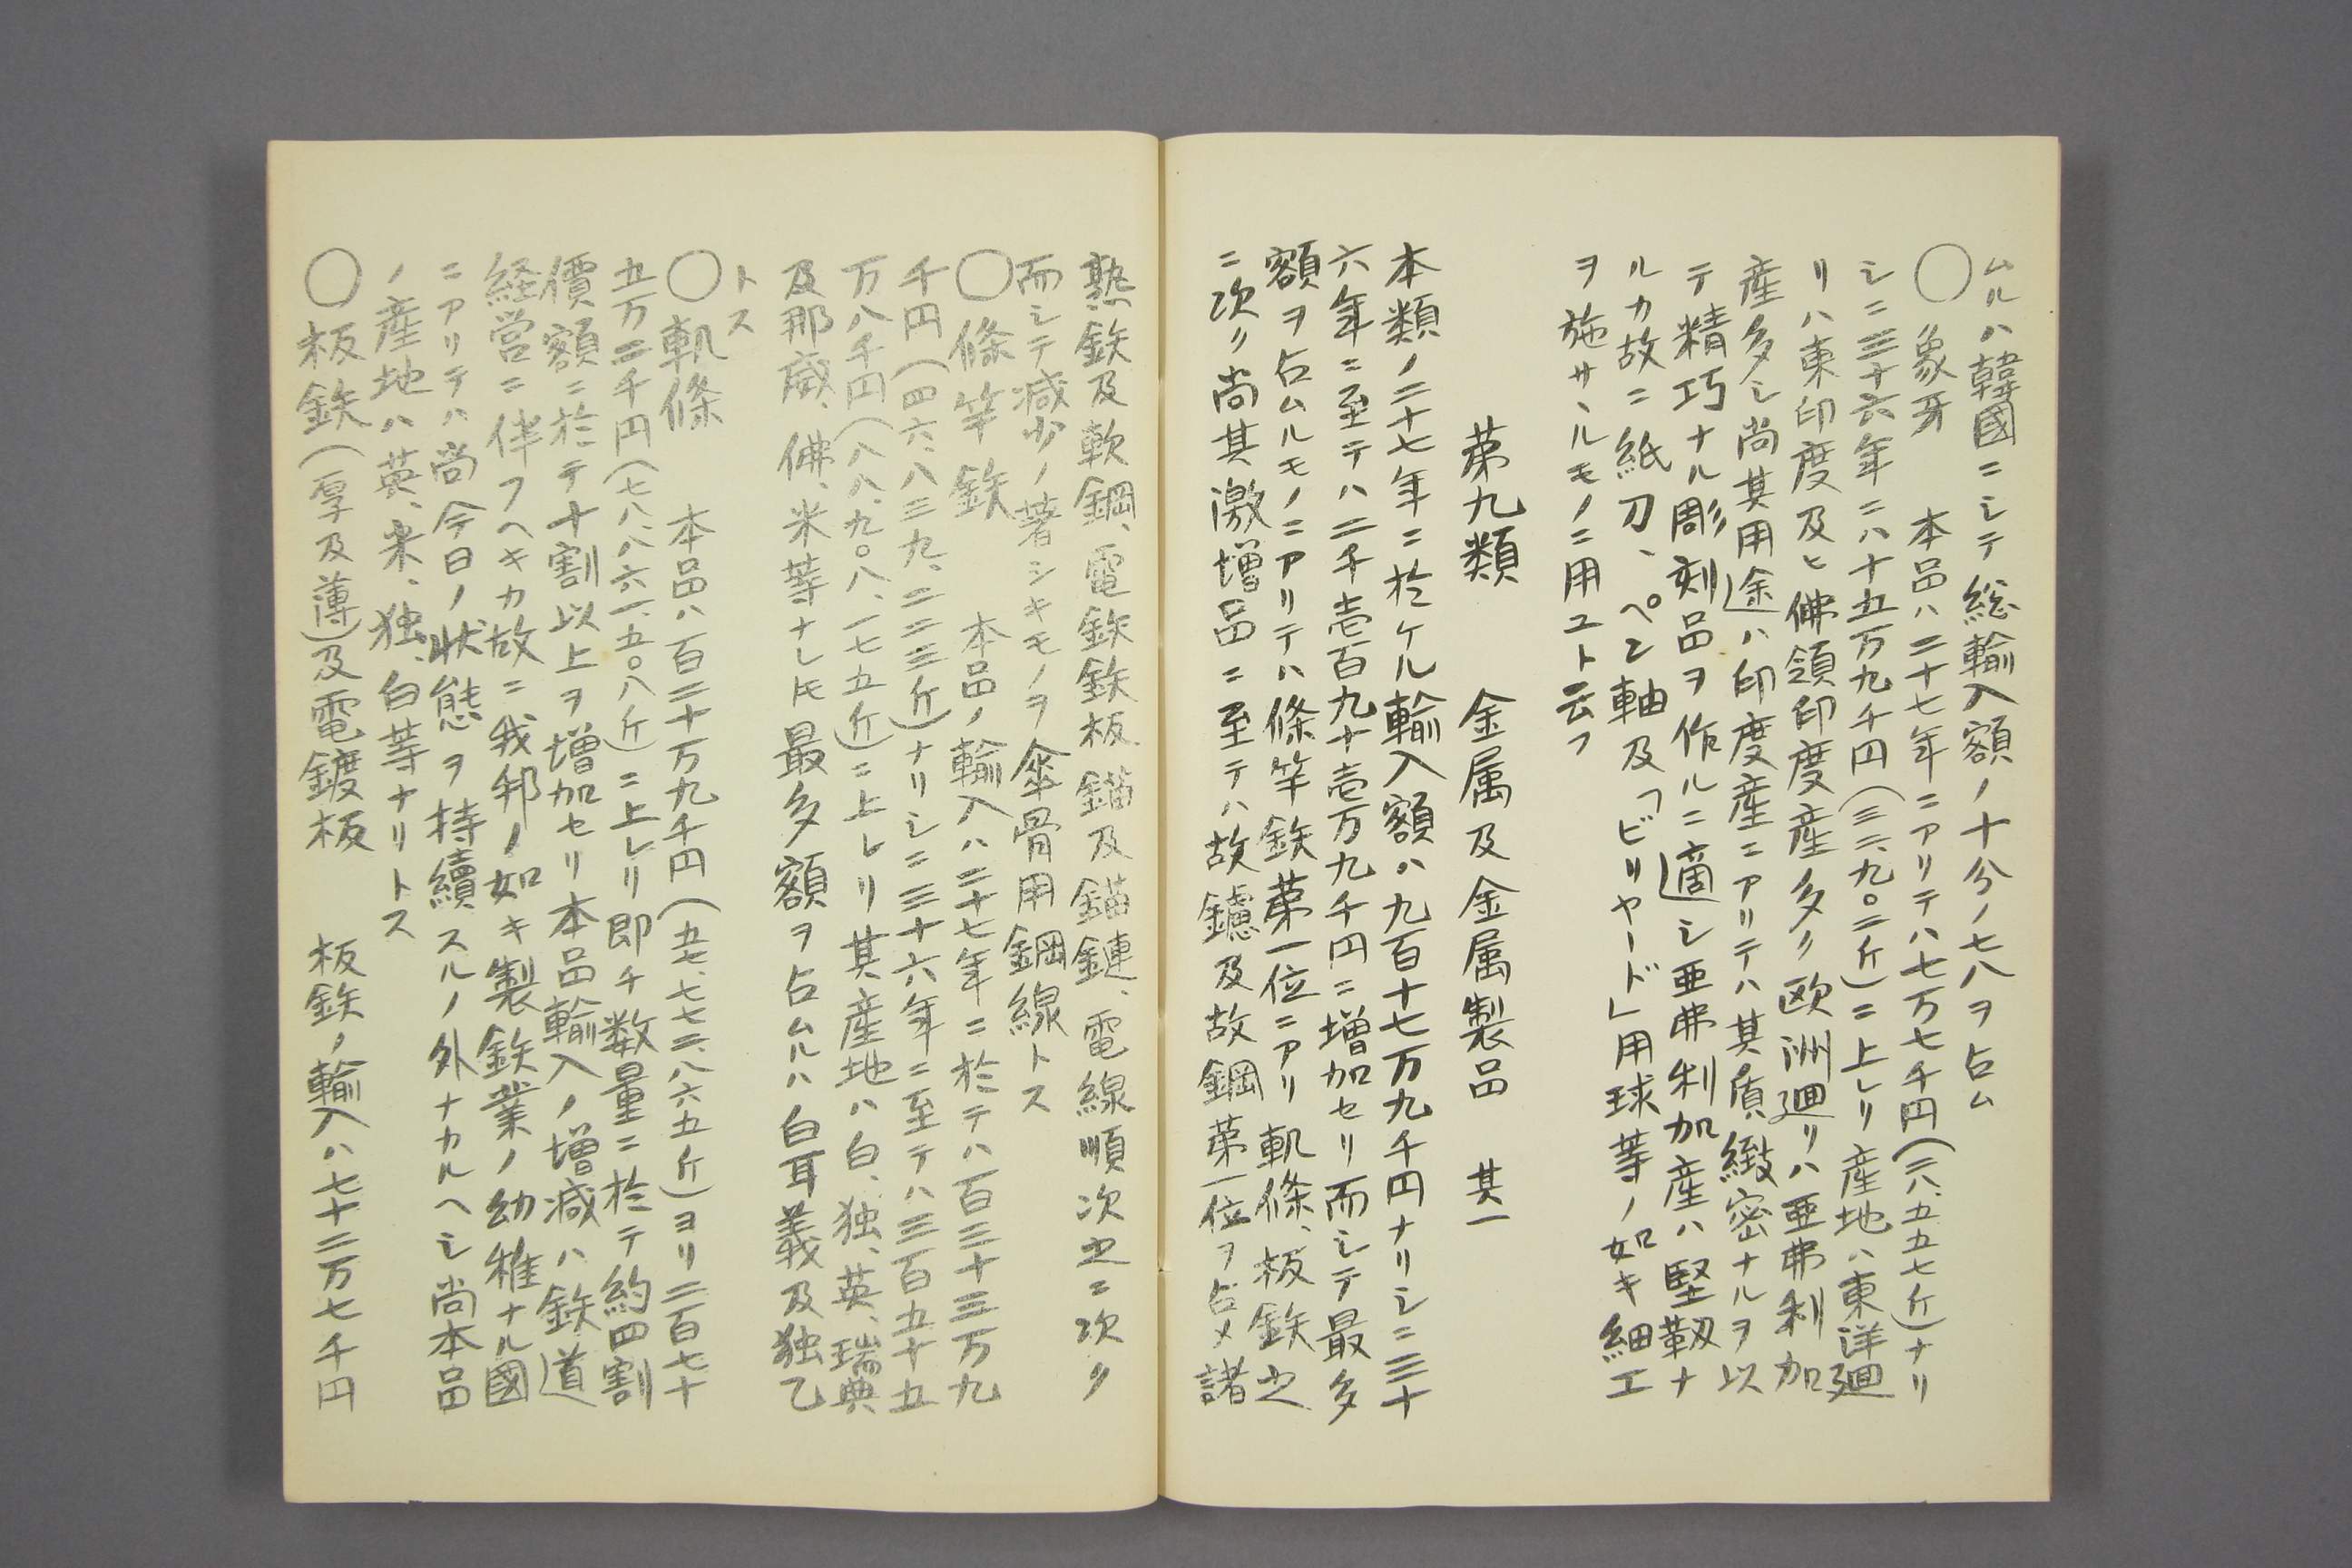 ムルハ韓國ニシテ総輸入額ノ十分ノ七八ヲ占ム
〇象牙　本品ハ二十七年ニアリテハ七万七千円(二八、五五七斤)ナリ
シニ三十六年ニハ十五万九千円(三三、九〇二斤)ニ上レリ産地ハ東洋廻
リハ東印度及ヒ佛領印度産多ク欧洲廻リハ亜弗利加
産多シ尚其用途ハ印度産ニアリテハ其質緻密ナルヲ以
テ精巧ナル彫刻品ヲ作ルニ適シ亜弗利加産ハ堅靱ナ
ルカ故ニ紙刀、ペン軸及「ビリヤード」用球等ノ如キ細工
ヲ施サヽルモノニ用ユト云フ
第九類　金属及金属製品　其一
本類ノ二十七年ニ於ケル輸入額ハ九百十七万九千円ナリシニ三十
六年ニ至テハ二千壱百九十壱万九千円ニ増加セリ而シテ最多
額ヲ占ムルモノニアリテハ條竿鉄第一位ニアリ軌條、板鉄之
ニ次ク尚其激増品ニ至テハ故鑢及故鋼第一位ヲ占メ諸
熟鉄及軟鋼、電鉄鉄板、錨及錨鏈、電線順次之ニ次ク
而シテ減少ノ著シキモノヲ傘骨用鋼線トス
〇條竿鉄　本品ノ輸入ハ二十七年ニ於テハ百三十三万九
千円(四六、八三九、二二三斤)ナリシニ三十六年ニ至テハ三百五十五
万八千円(八八、九〇八、一七五斤)ニ上レリ其産地ハ白、独、英、瑞典
及那威、佛、米等ナレ𪜈最多額ヲ占ムルハ白耳義及独乙
トス
〇軌條　本品ハ百二十万九千円(五七、七七二、八六五斤)ヨリ二百七十
五万二千円(七八、八六一、五〇八斤)ニ上レリ即チ数量ニ於テ約四割
價額ニ於テ十割以上ヲ増加セリ本品輸入ノ増減ハ鉄道
経営ニ伴フヘキカ故ニ我邦ノ如キ製鉄業ノ幼稚ナル國
ニアリテハ尚今日ノ状態ヲ持續スルノ外ナカルヘシ尚本品
ノ産地ハ英、米、独、白等ナリトス
〇板鉄(厚及薄)及電鍍板　板鉄ノ輸入ハ七十二万七千円